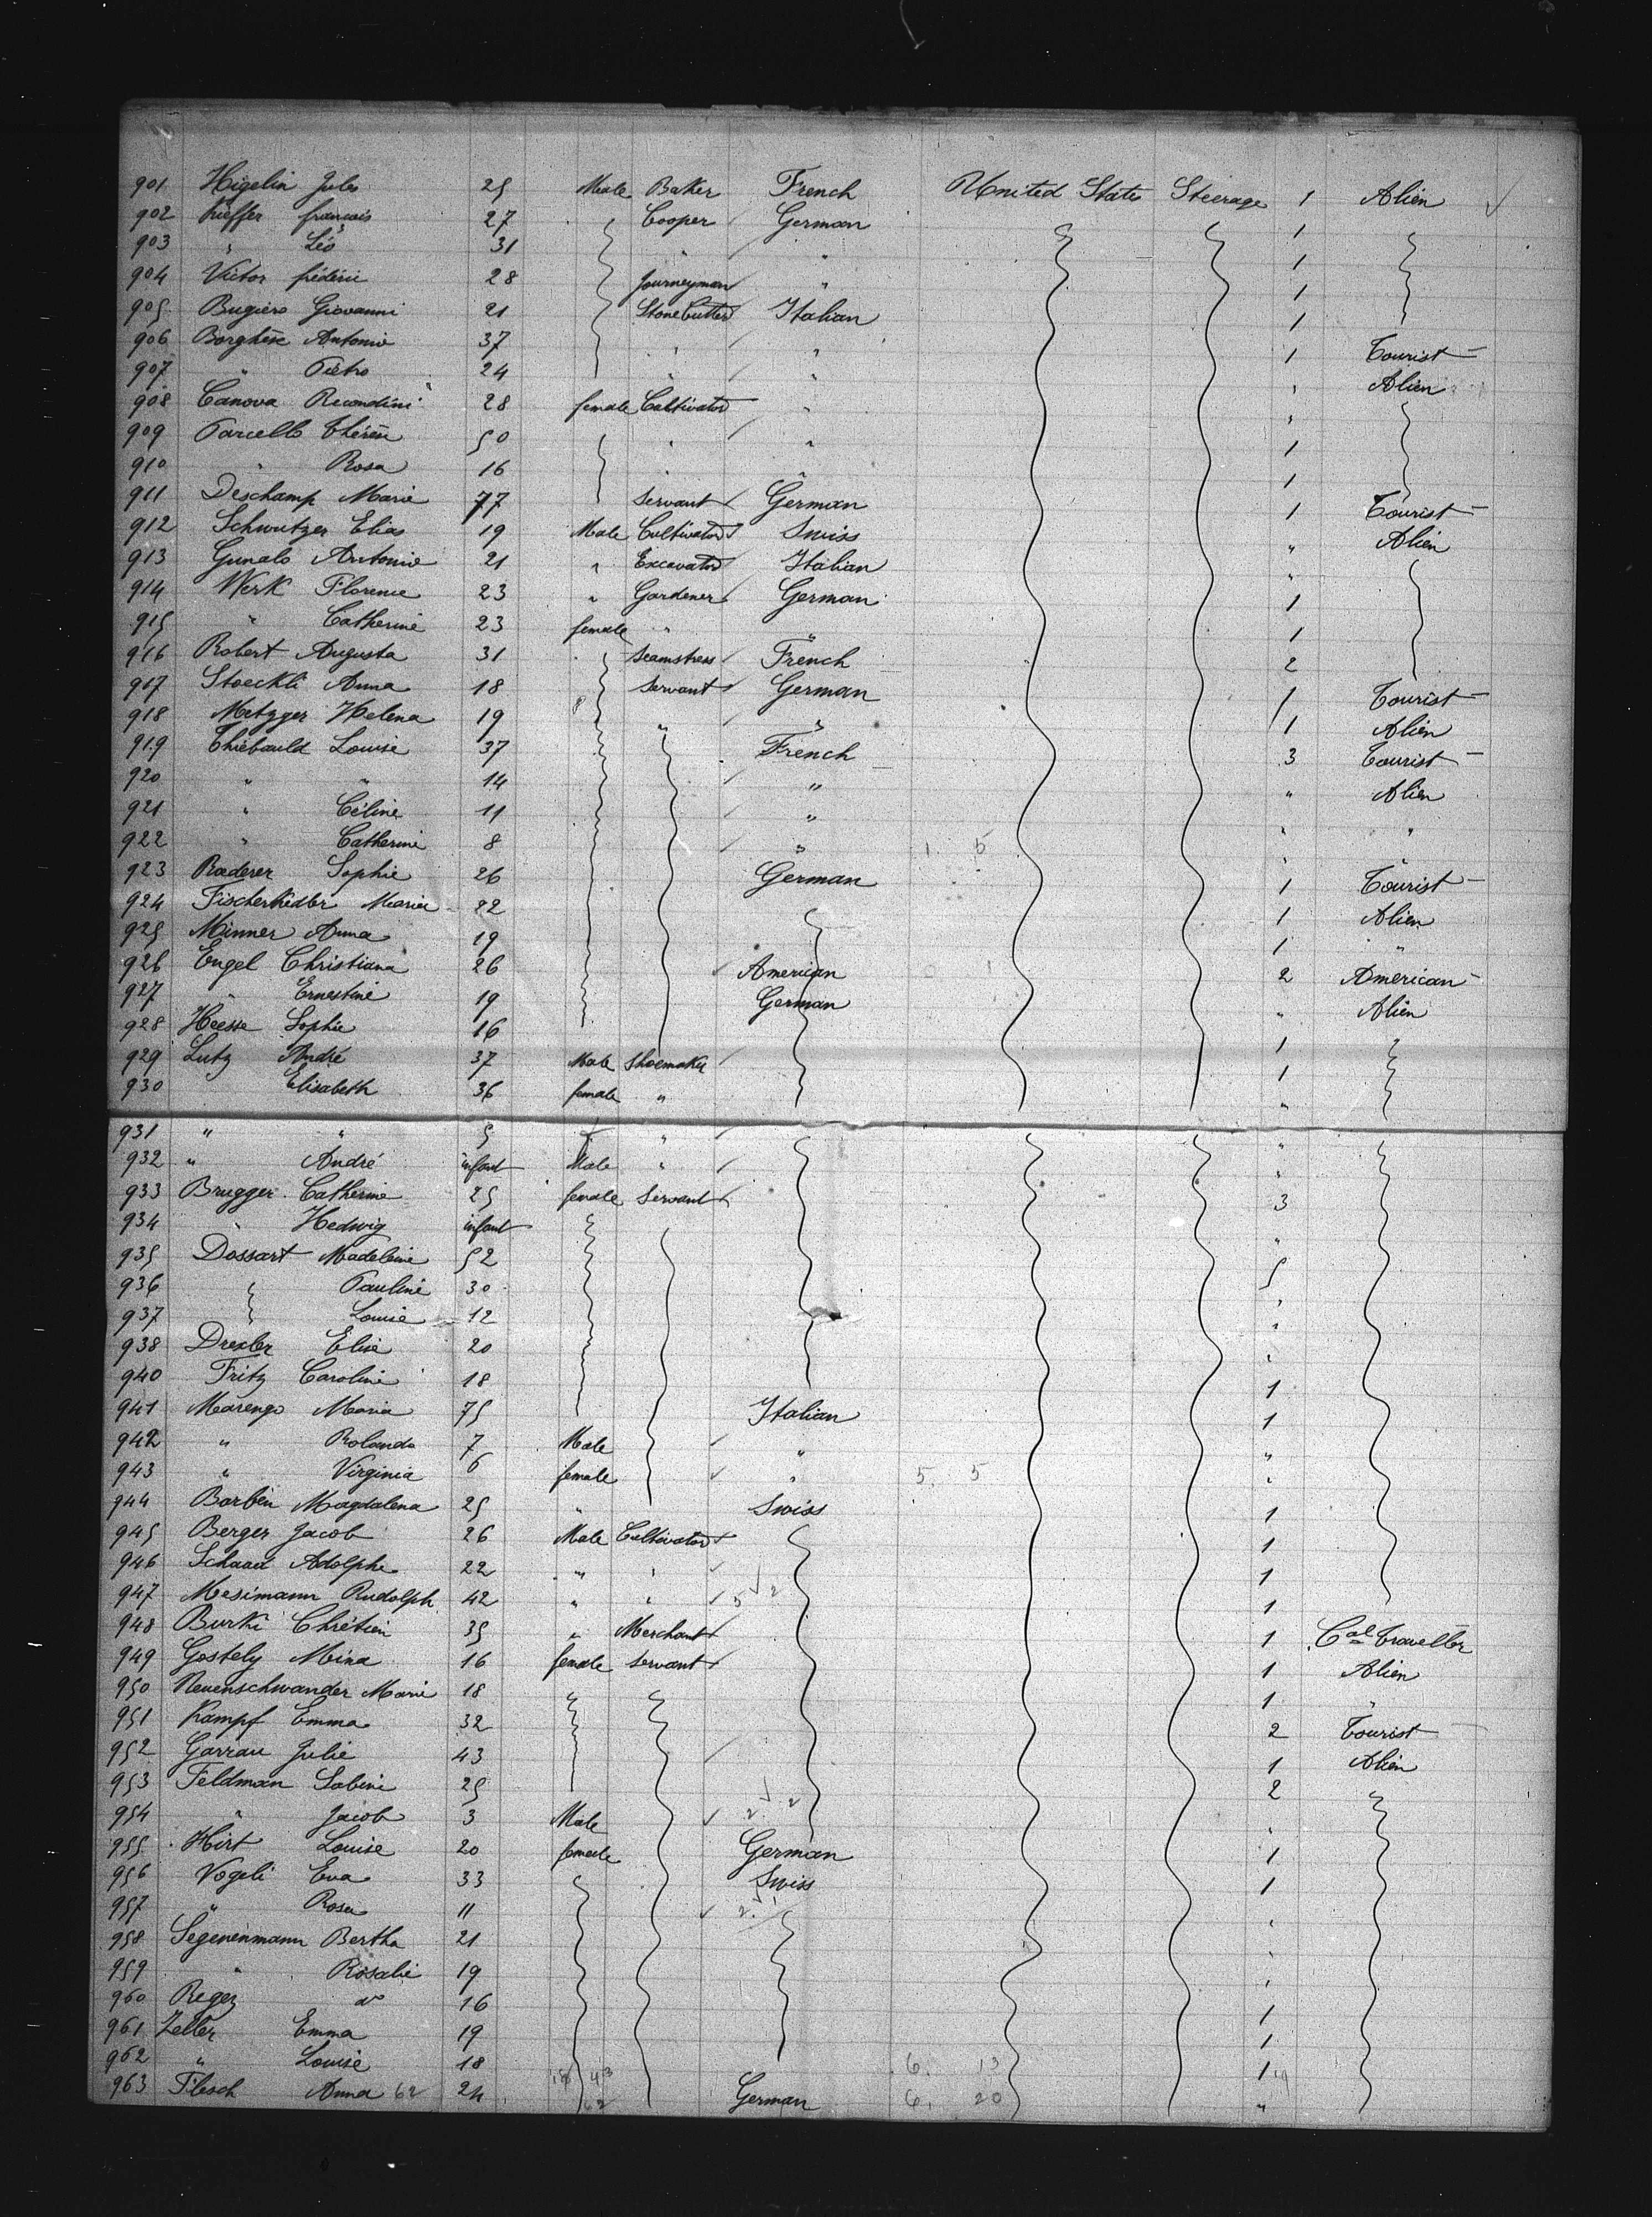 901 Higelin Jules 25 Male Baker French United States Steerage 1 Alien
902 Kieffer françois 27 Cooper German 1
903 " Léo 31 " " 1
904 Victor frédéric 28 Journeyman " 1
905 Bugiero Giovanni 21 Stone Cutter Italian 1
906 Borghèse Antonio 37 " " 1 Tourist
907 " Pietro 24 " " " Alien
908 Canova 28 female Cultivator " "
909 Parcello Thérèse 50 " " 1
910 " Rosa 16 " " 1
911 Deschamp Marie 77 Servant German 1 Tourist
912 Schwutzer Elias 19 Male Cultivator Swiss " Alien
913 Gunalo Antonio 21 " Excavator Italian "
914 Werk Florence 23 " Gardener German 1
915 " Catherine 23 female " " 1
916 Robert Augusta 31 Seamstress French 2
917 Stoeckli Anna 18 Servant German 1 Tourist
918 Metzger Helena 19 " " 1 Alien
919 Thiebauld Louise 37 French 3 Tourist
920 " " 14 " " Alien
921 " Céline 11 " " "
922 " Catherine 8 " 1 5 " "
923 Rœderer Sophie 26 German 1 Tourist
924 Marie 22 1 Alien
925 Minner Anna 19 1 "
926 Engel Christiana 26 American 0 1 2 American
927 " Ernestine 19 German " Alien
928 Heesse Sophie 16 1
929 Lutz André 37 Male Shoemaker 1
930 Elisabeth 36 female " "
931 " " 5 " "
932 " André infant Male " "
933 Brugger Catherine 25 female Servant 3
934 " Hedwig infant "
935 Dossart Madeleine 52 5
936 Pauline 30 "
937 Louise 12 "
938 Drexler Elise 20 "
940 Fritz Caroline 18 1
941 Marengo Maria 75 Italian 1
942 " Rolando 7 Male " "
943 " Virginia 6 female " 5 5 "
944 Barbin Magdalena 25 " Swiss 1
945 Berger Jacob 26 Male Cultivator 1
946 Schaad Adolphe 22 " " 1
947 Mesimann Rudolph 42 " " 1
948 Burki Chrétien 35 " Merchant 1 Cal Traveller
949 Gostely Mina 16 female Servant 1 Alien
950 Neuenschwander Marie 18 1 "
951 Kampf Emma 32 2 Tourist
952 Garrau Julie 43 1 Alien
953 Feldman Sabine 25 2
954 " Jacob 3 Male 2 2 "
955 Hirt Louise 20 female German 1
956 Vogeli Eva 33 Swiss 1
957 " Rosa 11 "
958 Segenenmann Bertha 21 "
959 " Rosalie 19 "
960 Regez do 16 1
961 Zeller Emma 19 1
962 " Louise 18 6. 13 1
963 Flesch Anna 62 24 German 6. 20 "